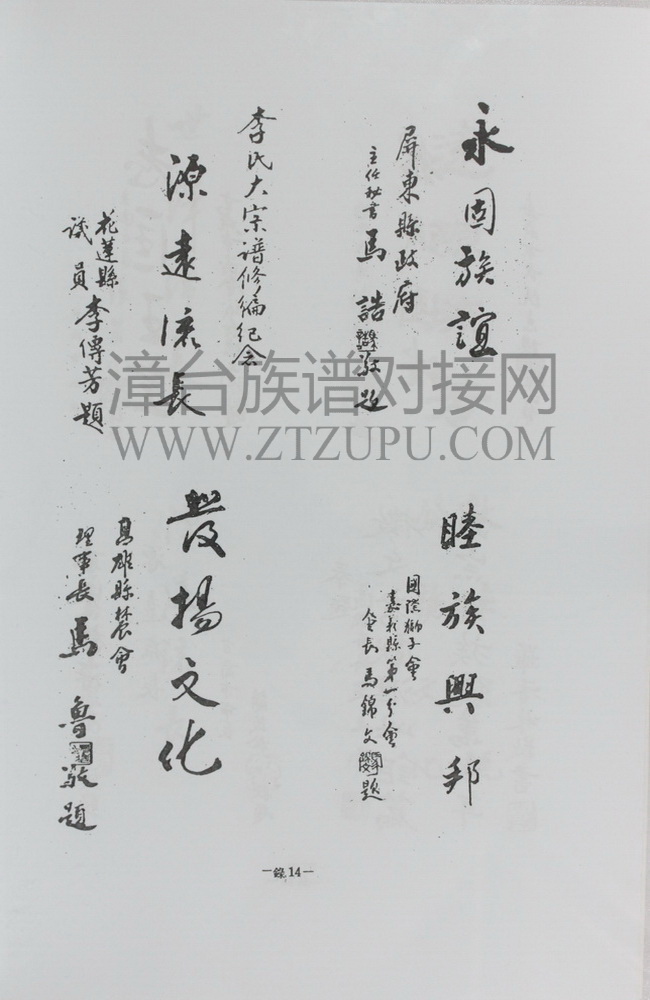 永固族誼
屏東縣政府
主任秘書馬誥敬題
睦族興邦
國際獅子會
嘉義縣第一分會
會長馬錦文題
李氏大宗譜修編紀念
源遠流長
花蓮縣
議員李傳芳題
發揚文化
高雄縣農會
理事長馬魯敬題
漳台族谱对接网
WWW.ZTZUPU.COM
—錄14—